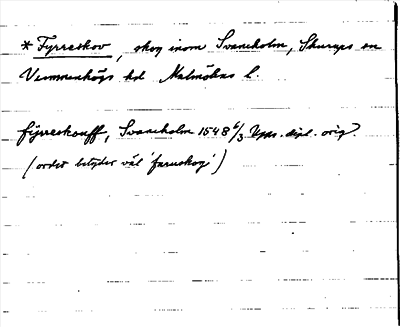 * Fyrreskov, skog inom Svaneholm, Skurups sn
Vemmenhögs hd Malmöhus l.
fyrreskouff, Svaneholm 1548 6/3 dipl. orig.
(ordet betyder väl 'furuskog')